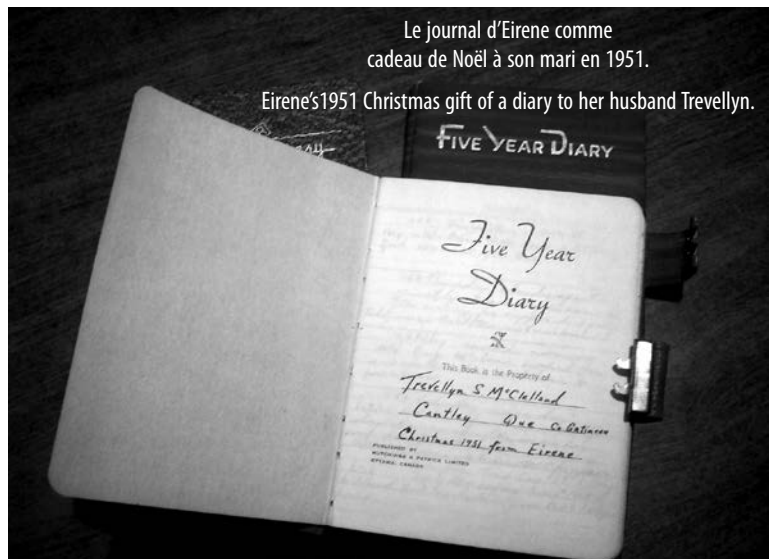 Le journal d'Eirene comme
cadeau de Noël à son mari en 1951.
Eirene's1951 Christmas gift of a diary to her husband Trevellyn.
FIVE YEAR DIARY
Five Year
Diary
This Book is the Property of
Trevellyn S McClelland
Cantley Que Co Gatineau
Christmas 1951 from Eirene
PUBLISHED BY
MORTIMER & PATRICK LIMITED
OTTAWA, CANADA